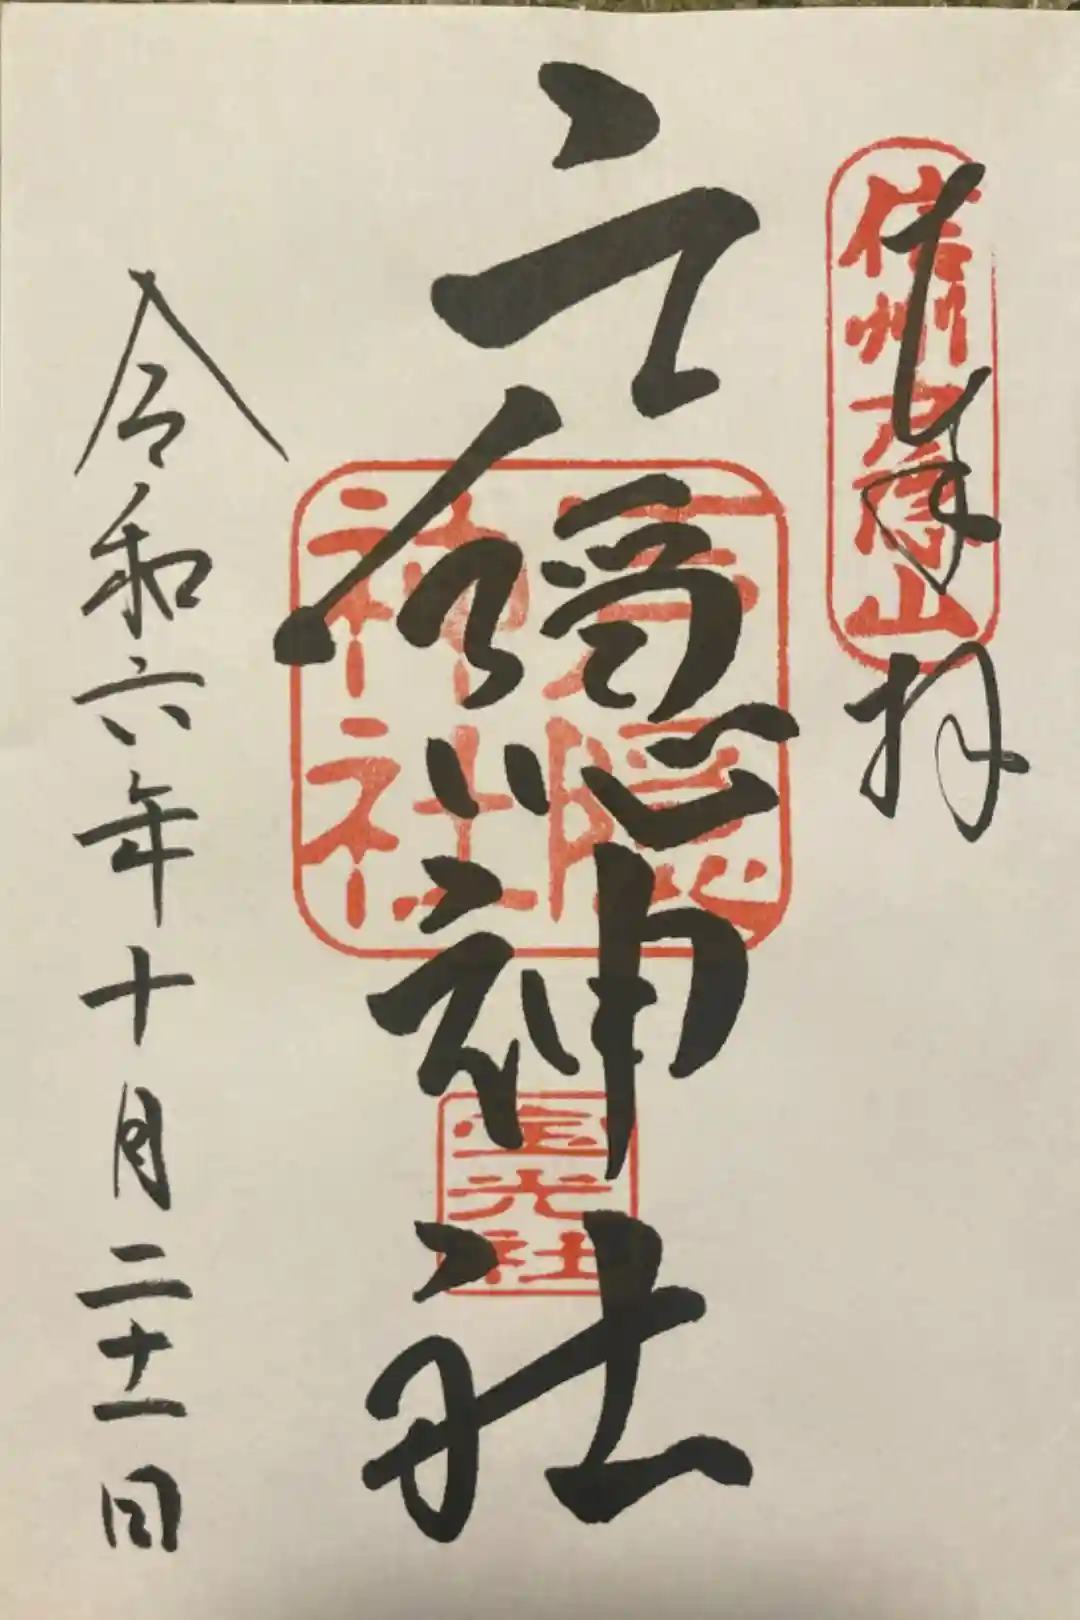 奉拝
信州戸隠山
戸隠神社
戸隠
神社
宝光社
令和六年十月二十一日